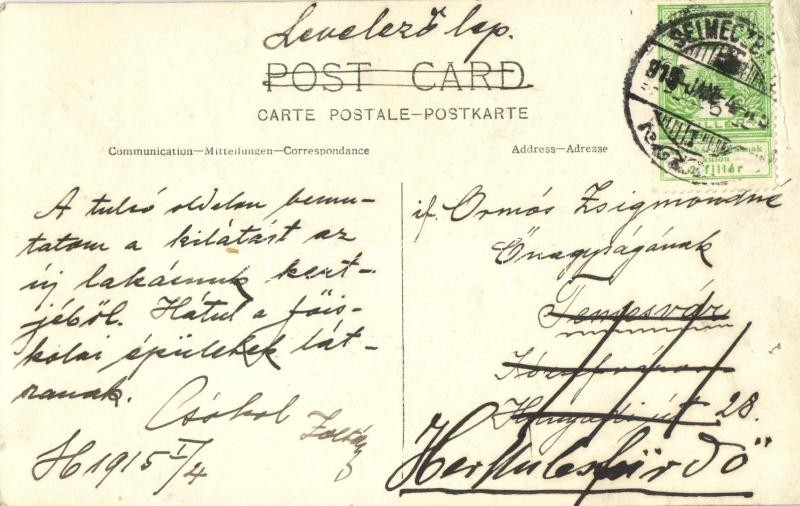 Levelező lap.
POST CARD
CARTE POSTALE–POSTKARTE
Communication—Mitteilungen—Correspondance
Address—Adresse
SELMECZB
915 JAN. 4
fillér
A tulsó oldalon bemu-
tatom a kilátást az
új lakásunk kert-
jéből. Hátul a főis-
kolai épületek lát-
szanak.
Csókol
Zoltán
1915 I/4
if. Ormós Zsigmondné
Őnagyságának
Temesvár
Hunyadi út 28.
Herkulesfürdő